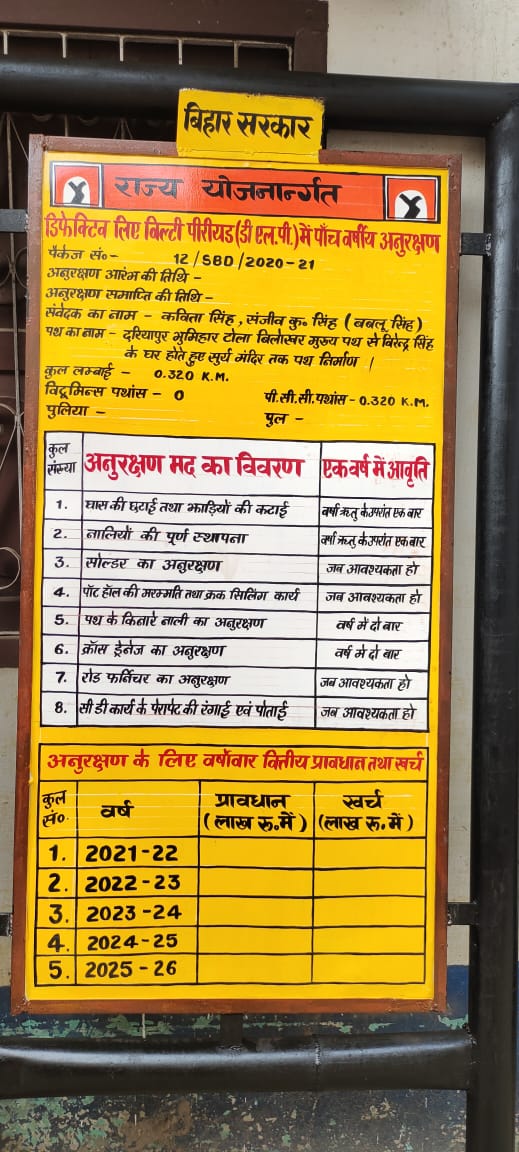 बिहार सरकार
राज्य योजनान्र्गत
डिफेक्टिव लिए विल्टी पीरीयड (डी एल.पी.) में पाँच वर्षीय अनुरक्षण
पैकेज सं०- 12/SBD/2020-21
अनुरक्षण आरंभ की तिथि -
अनुरक्षण समाप्ति की तिथि -
संवेदक का नाम - कविता सिंह, संजीव कु० सिंह (बबलू सिंह)
पथ का नाम - दरियापुर भुमिहार टोला बिलोखर मुख्य पथ से बिरेन्द्र सिंह
के घर होते हुए सुर्य मंदिर तक पथ निर्माण ।
कुल लम्बाई - 0.320 K.M.
विटूमिन्स पथांस - 0 पी.सी.सी.पथांस - 0.320 K.M.
पुलिया - पुल -
कुल संख्या अनुरक्षण मद का विवरण एक वर्ष में आवृति
1. घास की छुटाई तथा झाड़ियों की कटाई वर्षा ऋतु के उपरांत एक बार
2. नालियों की पूर्ण स्थापना वर्षा ऋतु के उपरांत एक बार
3. सोल्डर का अनुरक्षण जब आवश्यकता हो
4. पॉट हॉल की मरम्मति तथा क्रक सिलिंग कार्य जब आवश्यकता हो
5. पथ के किनारे नाली का अनुरक्षण वर्ष में दो बार
6. क्रॉस ड्रेनेज का अनुरक्षण वर्ष में दो बार
7. रोड फर्निचर का अनुरक्षण जब आवश्यकता हो
8. सी डी कार्य के पेरापेट की रंगाई एवं पोताई जब आवश्यकता हो
अनुरक्षण के लिए वर्षोवार वित्तीय प्रावधान तथा खर्च
कुल सं० वर्ष प्रावधान (लाख रू. में) खर्च (लाख रू. में)
1. 2021-22
2. 2022-23
3. 2023-24
4. 2024-25
5. 2025-26